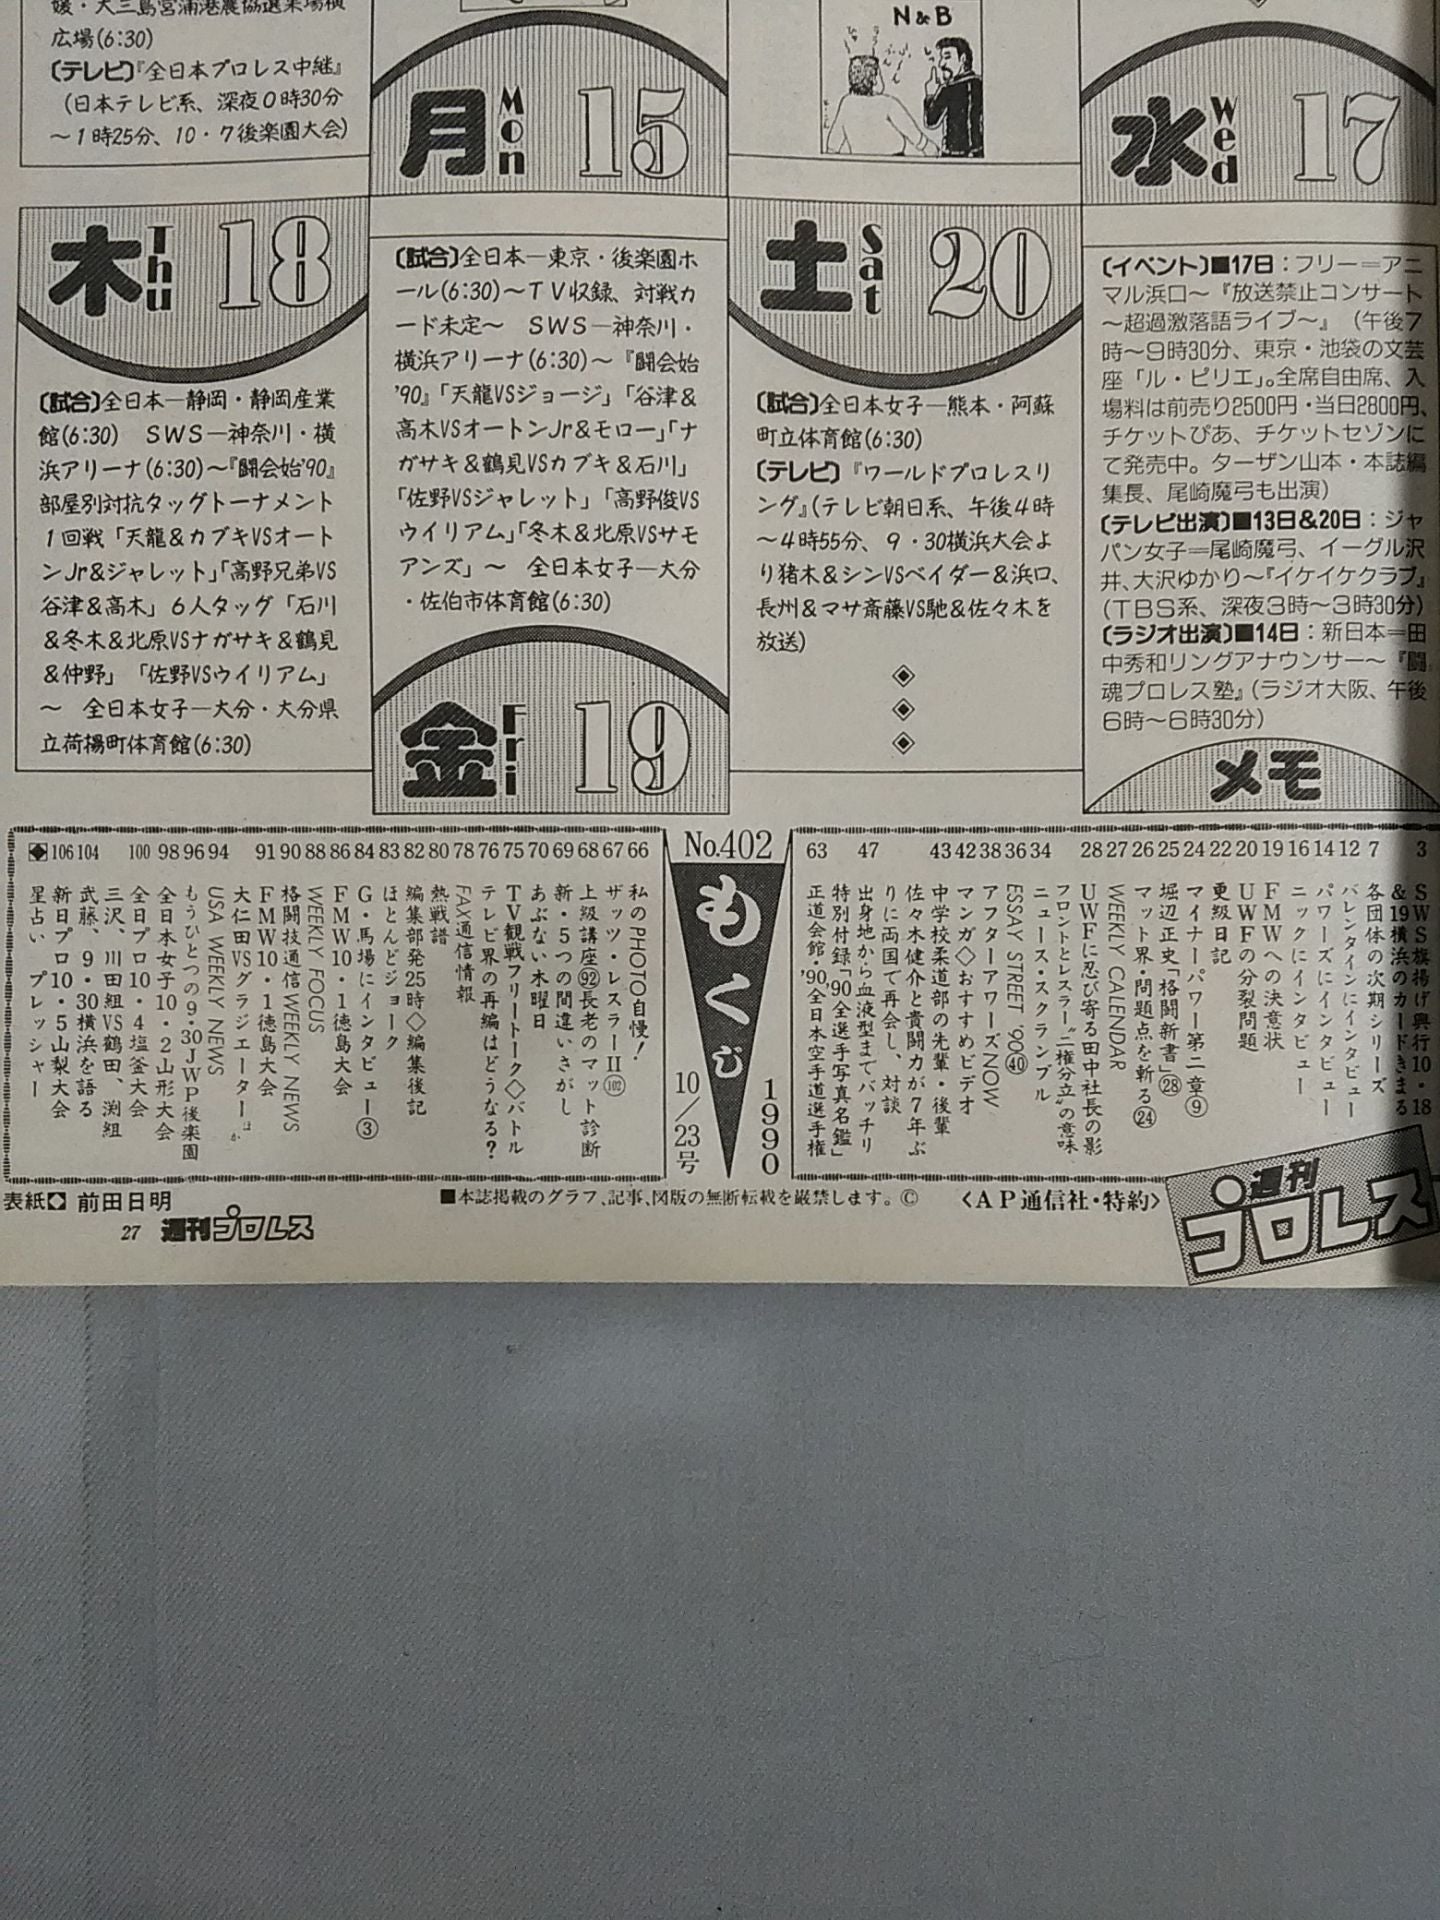 媛・大三島宮浦港農協選果場横
広場(6:30)
〔テレビ〕『全日本プロレス中継』
(日本テレビ系、深夜0時30分
～1時25分、10・7後楽園大会)
月 Mon 15
N&B
水 Wed 17
木 Thu 18
〔試合〕全日本―静岡・静岡産業
館(6:30) SWS―神奈川・横
浜アリーナ(6:30)～『闘会始'90』
部屋別対抗タッグトーナメント
1回戦「天龍&カブキVSオート
ンJr&ジャレット」「高野兄弟VS
谷津&高木」6人タッグ「石川
&冬木&北原VSナガサキ&鶴見
&仲野」「佐野VSウイリアム」
～ 全日本女子―大分・大分県
立荷揚町体育館(6:30)
〔試合〕全日本―東京・後楽園ホ
ール(6:30)～TV収録、対戦カ
ード未定～ SWS―神奈川・
横浜アリーナ(6:30)～『闘会始
'90』「天龍VSジョージ」「谷津&
高木VSオートンJr&モロー」「ナ
ガサキ&鶴見VSカブキ&石川」
「佐野VSジャレット」「高野俊VS
ウイリアム」「冬木&北原VSサモ
アンズ」～ 全日本女子―大分
・佐伯市体育館(6:30)
金 Fri 19
土 Sat 20
〔試合〕全日本女子―熊本・阿蘇
町立体育館(6:30)
〔テレビ〕『ワールドプロレスリ
ング』(テレビ朝日系、午後4時
～4時55分、9・30横浜大会よ
り猪木&シンVSベイダー&浜口、
長州&マサ斎藤VS馳&佐々木を
放送)
〔イベント〕■17日：フリー＝アニ
マル浜口～『放送禁止コンサート
～超過激落語ライブ～』(午後7
時～9時30分、東京・池袋の文芸
座「ル・ピリエ」。全席自由席、入
場料は前売り2500円・当日2800円、
チケットぴあ、チケットセゾンに
て発売中。ターザン山本・本誌編
集長、尾崎魔弓も出演)
〔テレビ出演〕■13日&20日：ジャ
パン女子＝尾崎魔弓、イーグル沢
井、大沢ゆかり～『イケイケクラブ』
(TBS系、深夜3時～3時30分)
〔ラジオ出演〕■14日：新日本＝田
中秀和リングアナウンサー～『闘
魂プロレス塾』(ラジオ大阪、午後
6時～6時30分)
メモ
3 SWS旗揚げ興行10・18
&19横浜のカードきまる
7 各団体の次期シリーズ
12 バレンタインにインタビュー
14 パワーズにインタビュー
16 ニックにインタビュー
19 FMWへの決意状
20 UWFの分裂問題
22 更級日記
24 マイナーパワー第二章⑨
25 堀辺正史「格闘新書」㉘
26 マット界・問題点を斬る㉔
27 WEEKLY CALENDAR
28 UWFに忍び寄る田中社長の影
フロントとレスラー“二権分立”の意味
34 ニュース・スクランブル
36 ESSAY STREET '90㊵
38 アフターアワーズNOW
42 マンガ◇おすすめビデオ
43 中学校柔道部の先輩・後輩
佐々木健介と貴闘力が7年ぶ
りに両国で再会し、対談
47 出身地から血液型までバッチリ
特別付録「'90全選手写真名鑑」
63 正道会館・'90全日本空手道選手権
No.402
もくじ
1990
10/23号
66 私のPHOTO自慢!
67 ザッツ・レスラーII(102)
68 上級講座(92)長老のマット診断
69 新・5つの間違いさがし
70 あぶない木曜日
75 TV観戦フリートーク◇バトル
76 テレビ界の再編はどうなる?
78 FAX通信情報
80 熱戦譜
82 編集部発25時◇編集後記
83 ほとんどジョーク
84 G・馬場にインタビュー③
86 FMW10・1徳島大会
88 WEEKLY FOCUS
90 格闘技通信WEEKLY NEWS
91 FMW10・1徳島大会
大仁田VSグラジエーターほか
94 USA WEEKLY NEWS
96 もうひとつの9・30JWP後楽園
98 全日本女子10・2山形大会
100 全日プロ10・4塩釜大会
三沢、川田組VS鶴田、渕組
104 武藤、9・30横浜を語る
106 新日プロ10・5山梨大会
◆ 星占い プレッシャー
表紙◆前田日明
■本誌掲載のグラフ、記事、図版の無断転載を厳禁します。©
〈AP通信社・特約〉
週刊プロレス
27 週刊プロレス